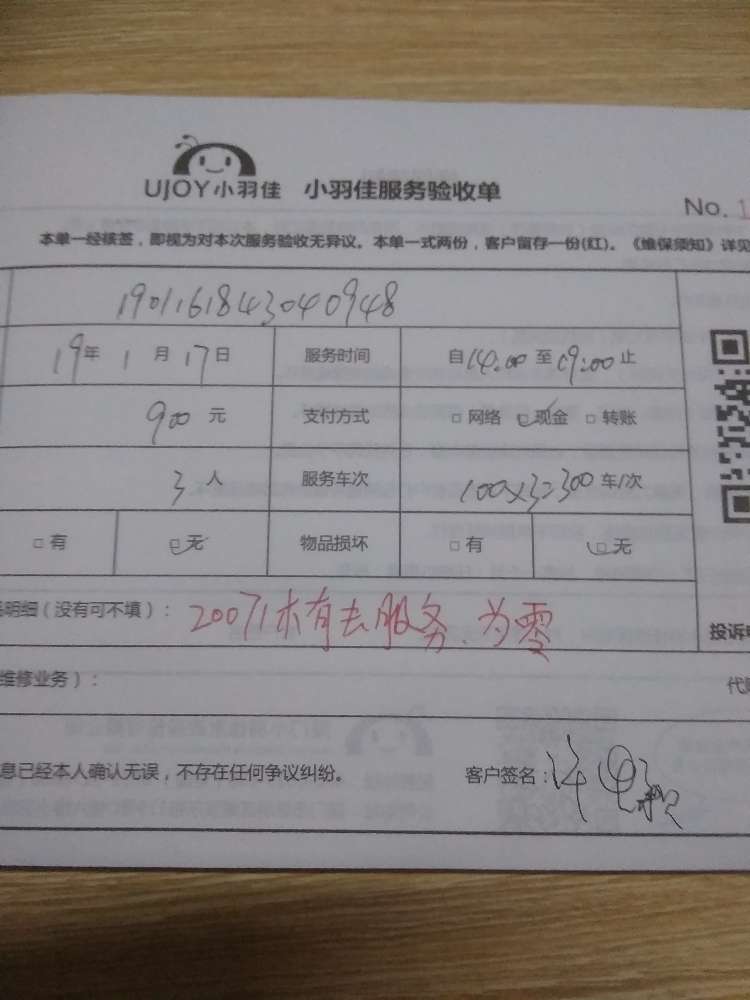 UJOY小羽佳 小羽佳服务验收单
No. 1
本单一经核签，即视为对本次服务验收无异议。本单一式两份，客户留存一份(红)。《维保须知》详见
1901161843040948
19年 1月17日 服务时间 自14:00至19:00止
900元 支付方式 □网络 □现金 □转账
3人 服务车次 100×3=300车/次
□有 □无 物品损坏 □有 □无
明细（没有可不填）： 20071未有去服务、为零
投诉电
维修业务）：
息已经本人确认无误，不存在任何争议纠纷。 客户签名：许